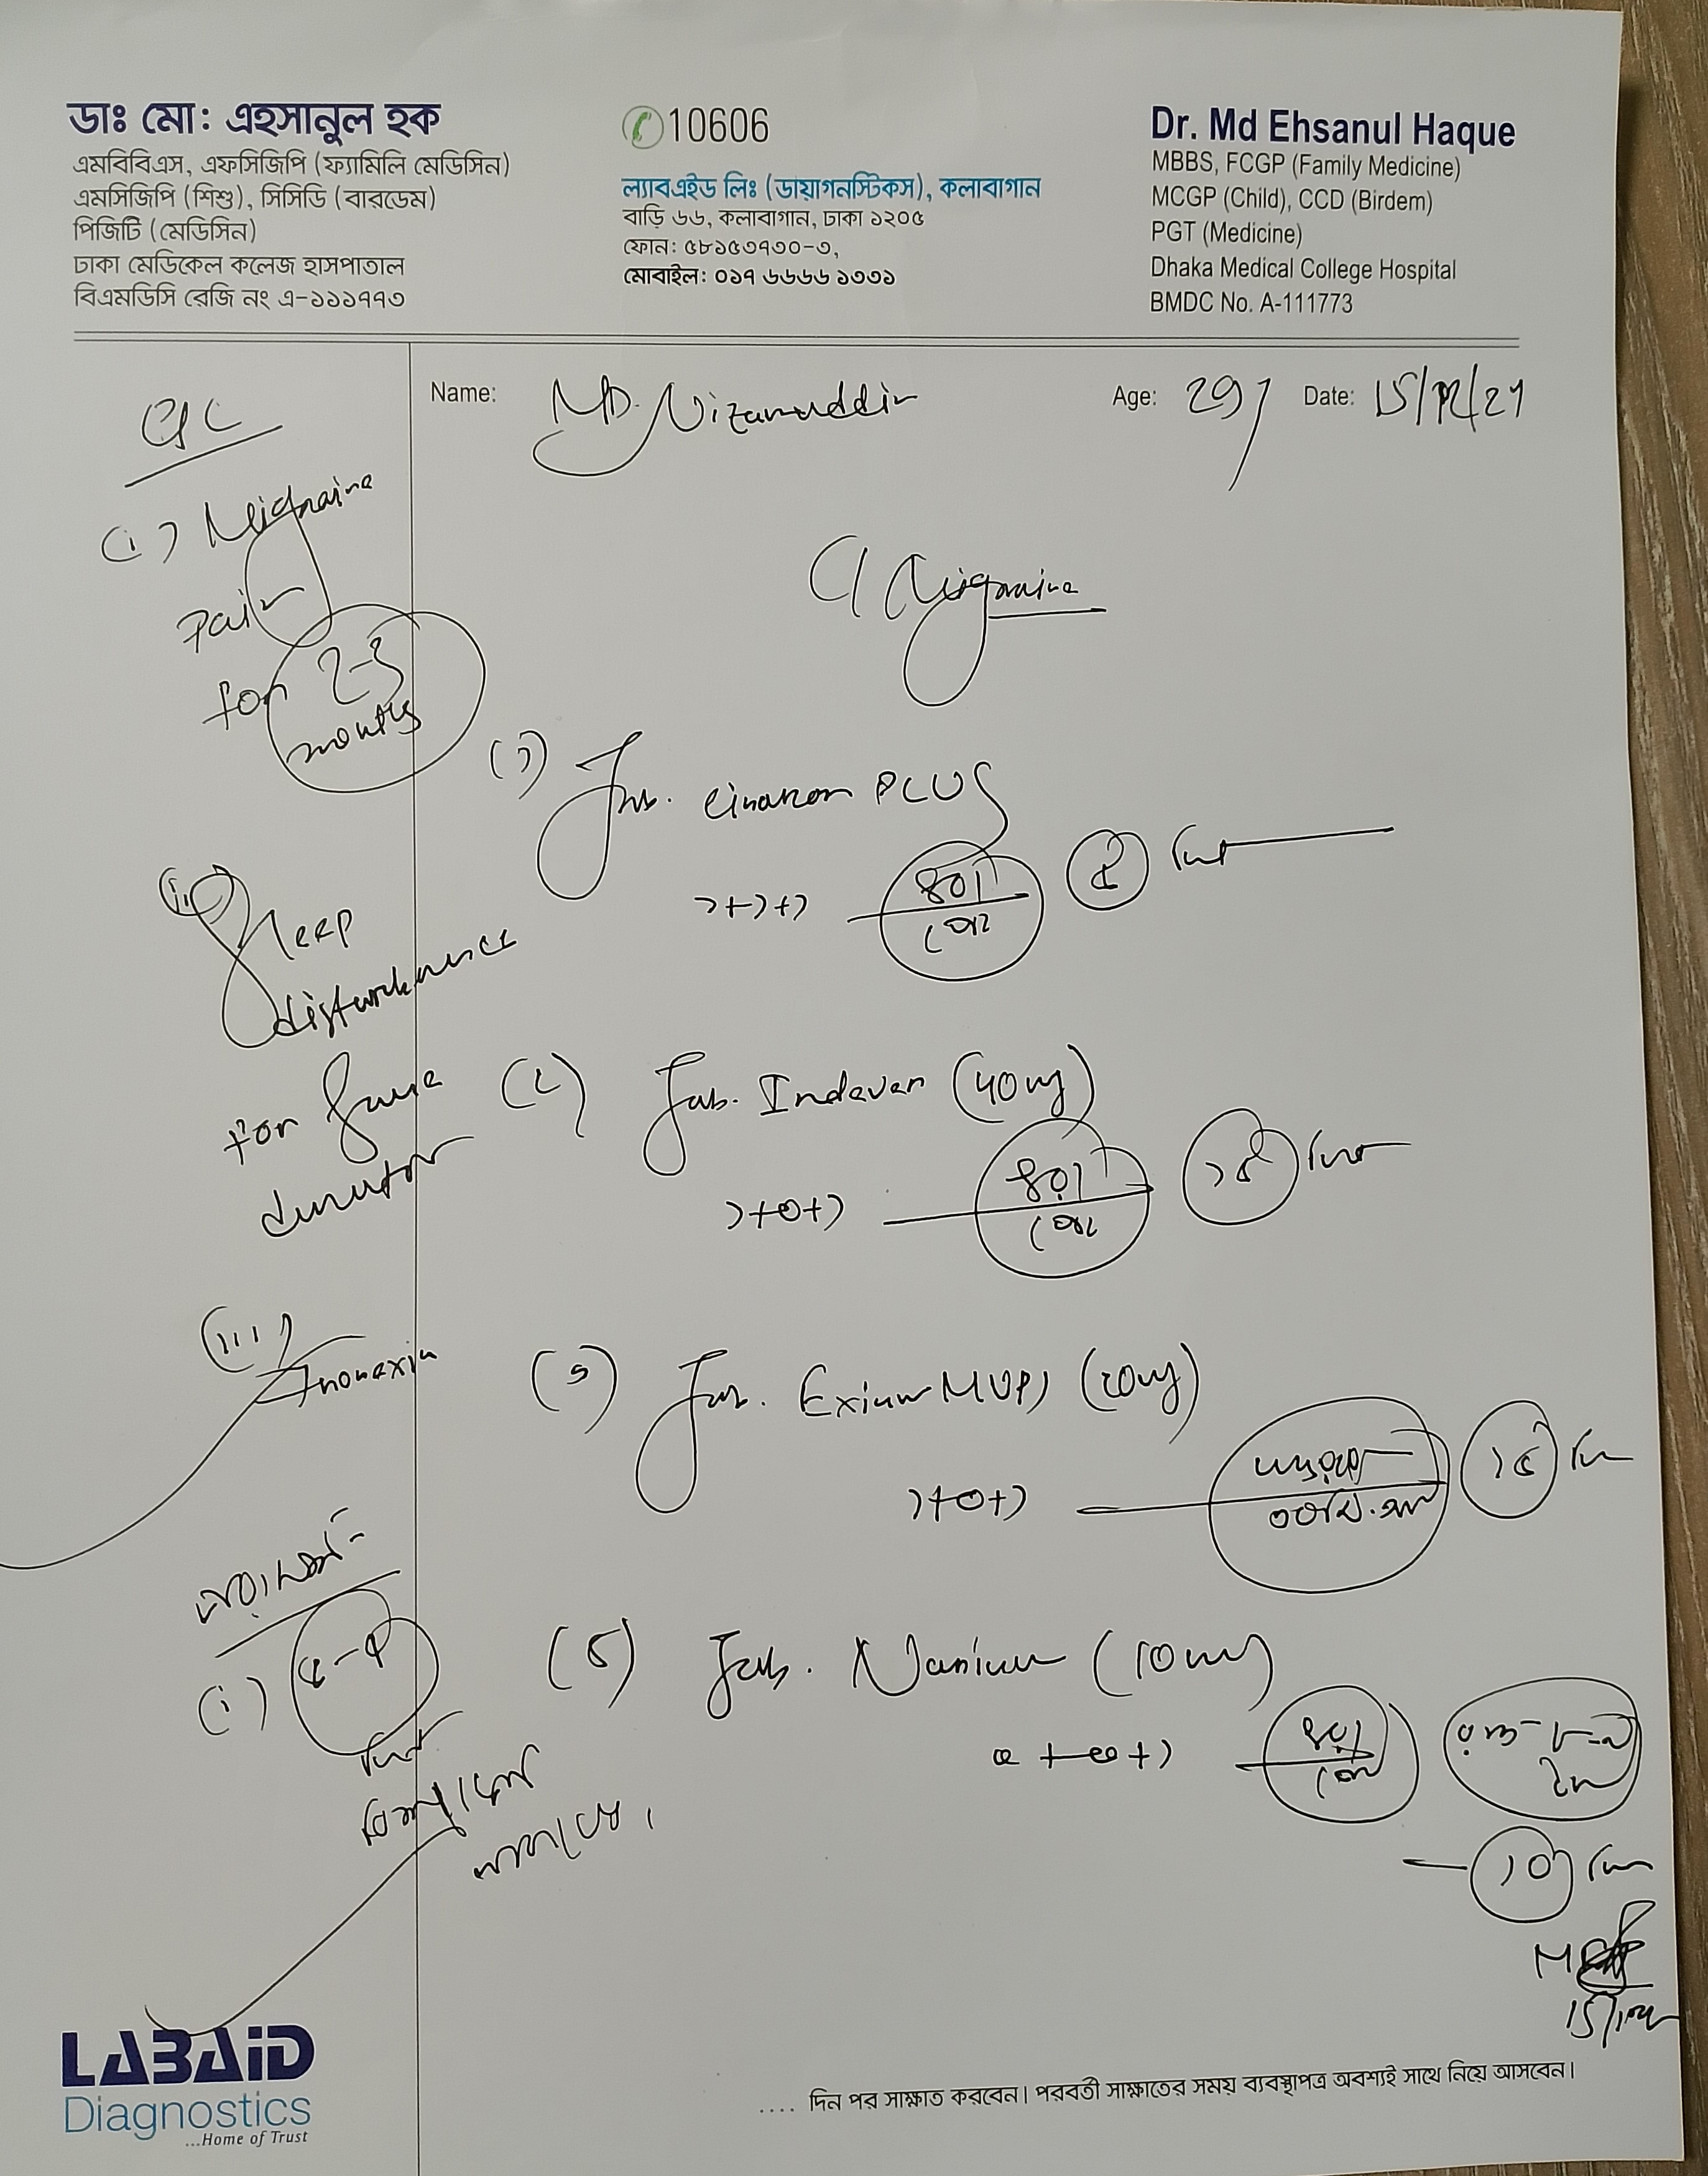 ডাঃ মো: এহসানুল হক
এমবিবিএস, এফসিজিপি (ফ্যামিলি মেডিসিন)
এমসিজিপি (শিশু), সিসিডি (বারডেম)
পিজিটি (মেডিসিন)
ঢাকা মেডিকেল কলেজ হাসপাতাল
বিএমডিসি রেজি নং এ-১১১৭৭৩
10606
ল্যাবএইড লিঃ (ডায়াগনস্টিকস), কলাবাগান
বাড়ি ৬৬, কলাবাগান, ঢাকা ১২০৫
ফোন: ৫৮১৫৩৭৩০-৩,
মোবাইল: ০১৭ ৬৬৬৬ ১৩৩১
Dr. Md Ehsanul Haque
MBBS, FCGP (Family Medicine)
MCGP (Child), CCD (Birdem)
PGT (Medicine)
Dhaka Medical College Hospital
BMDC No. A-111773
Name: MD. Nizamuddin
Age: 29
Date: 15/12/21
(i) Migraine
Pain
for 2-3
months
(ii) Sleep
disturbance
for same
duration
(iii)
(i) ৫-৭
দিন
Migraine
(১) Tab. Cinaron PLUS
১+১+১ ভরা
পেটে
৫ দিন
(২) Tab. Indever (40mg)
১+০+১ ভরা
পেটে
১৫ দিন
(৩) Tab. Exium MUPS (20mg)
১+০+১
৩০ মি. আগে
১৫ দিন
(৪) Tab. Nanium (10mg)
০+০+১ ভরা
পেটে
১০ দিন
LABAID
Diagnostics
...Home of Trust
.... দিন পর সাক্ষাত করবেন। পরবর্তী সাক্ষাতের সময় ব্যবস্থাপত্র অবশ্যই সাথে নিয়ে আসবেন।